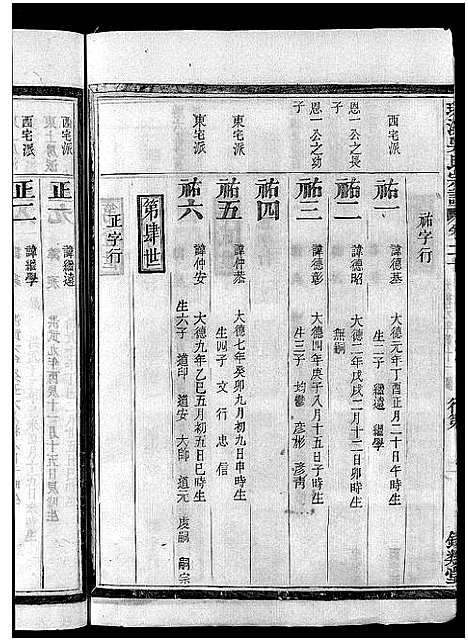 祐字行
祐一 諱德基 大德元年丁酉正月二十日午時生
生二子 繼遠 繼學
恩一公之長子
祐二 諱德昭 大德二年戊戌二月十二日卯時生
無嗣
恩一公之幼子
祐三 諱德彰 大德四年庚子八月十五日子時生
生三子 均鬱 彥彬 彥青
祐四
東宅派
祐五 諱仲恭 大德七年癸卯九月初九日申時生
生四子 文 行 忠 信
東宅派
祐六 諱仲安 大德九年乙巳五月初五日巳時生
生六子 道印 道安 大印 道元 虔嗣 嗣宗
第肆世
正字行
西宅派
正一 諱繼遠
西宅派
正二 諱繼學